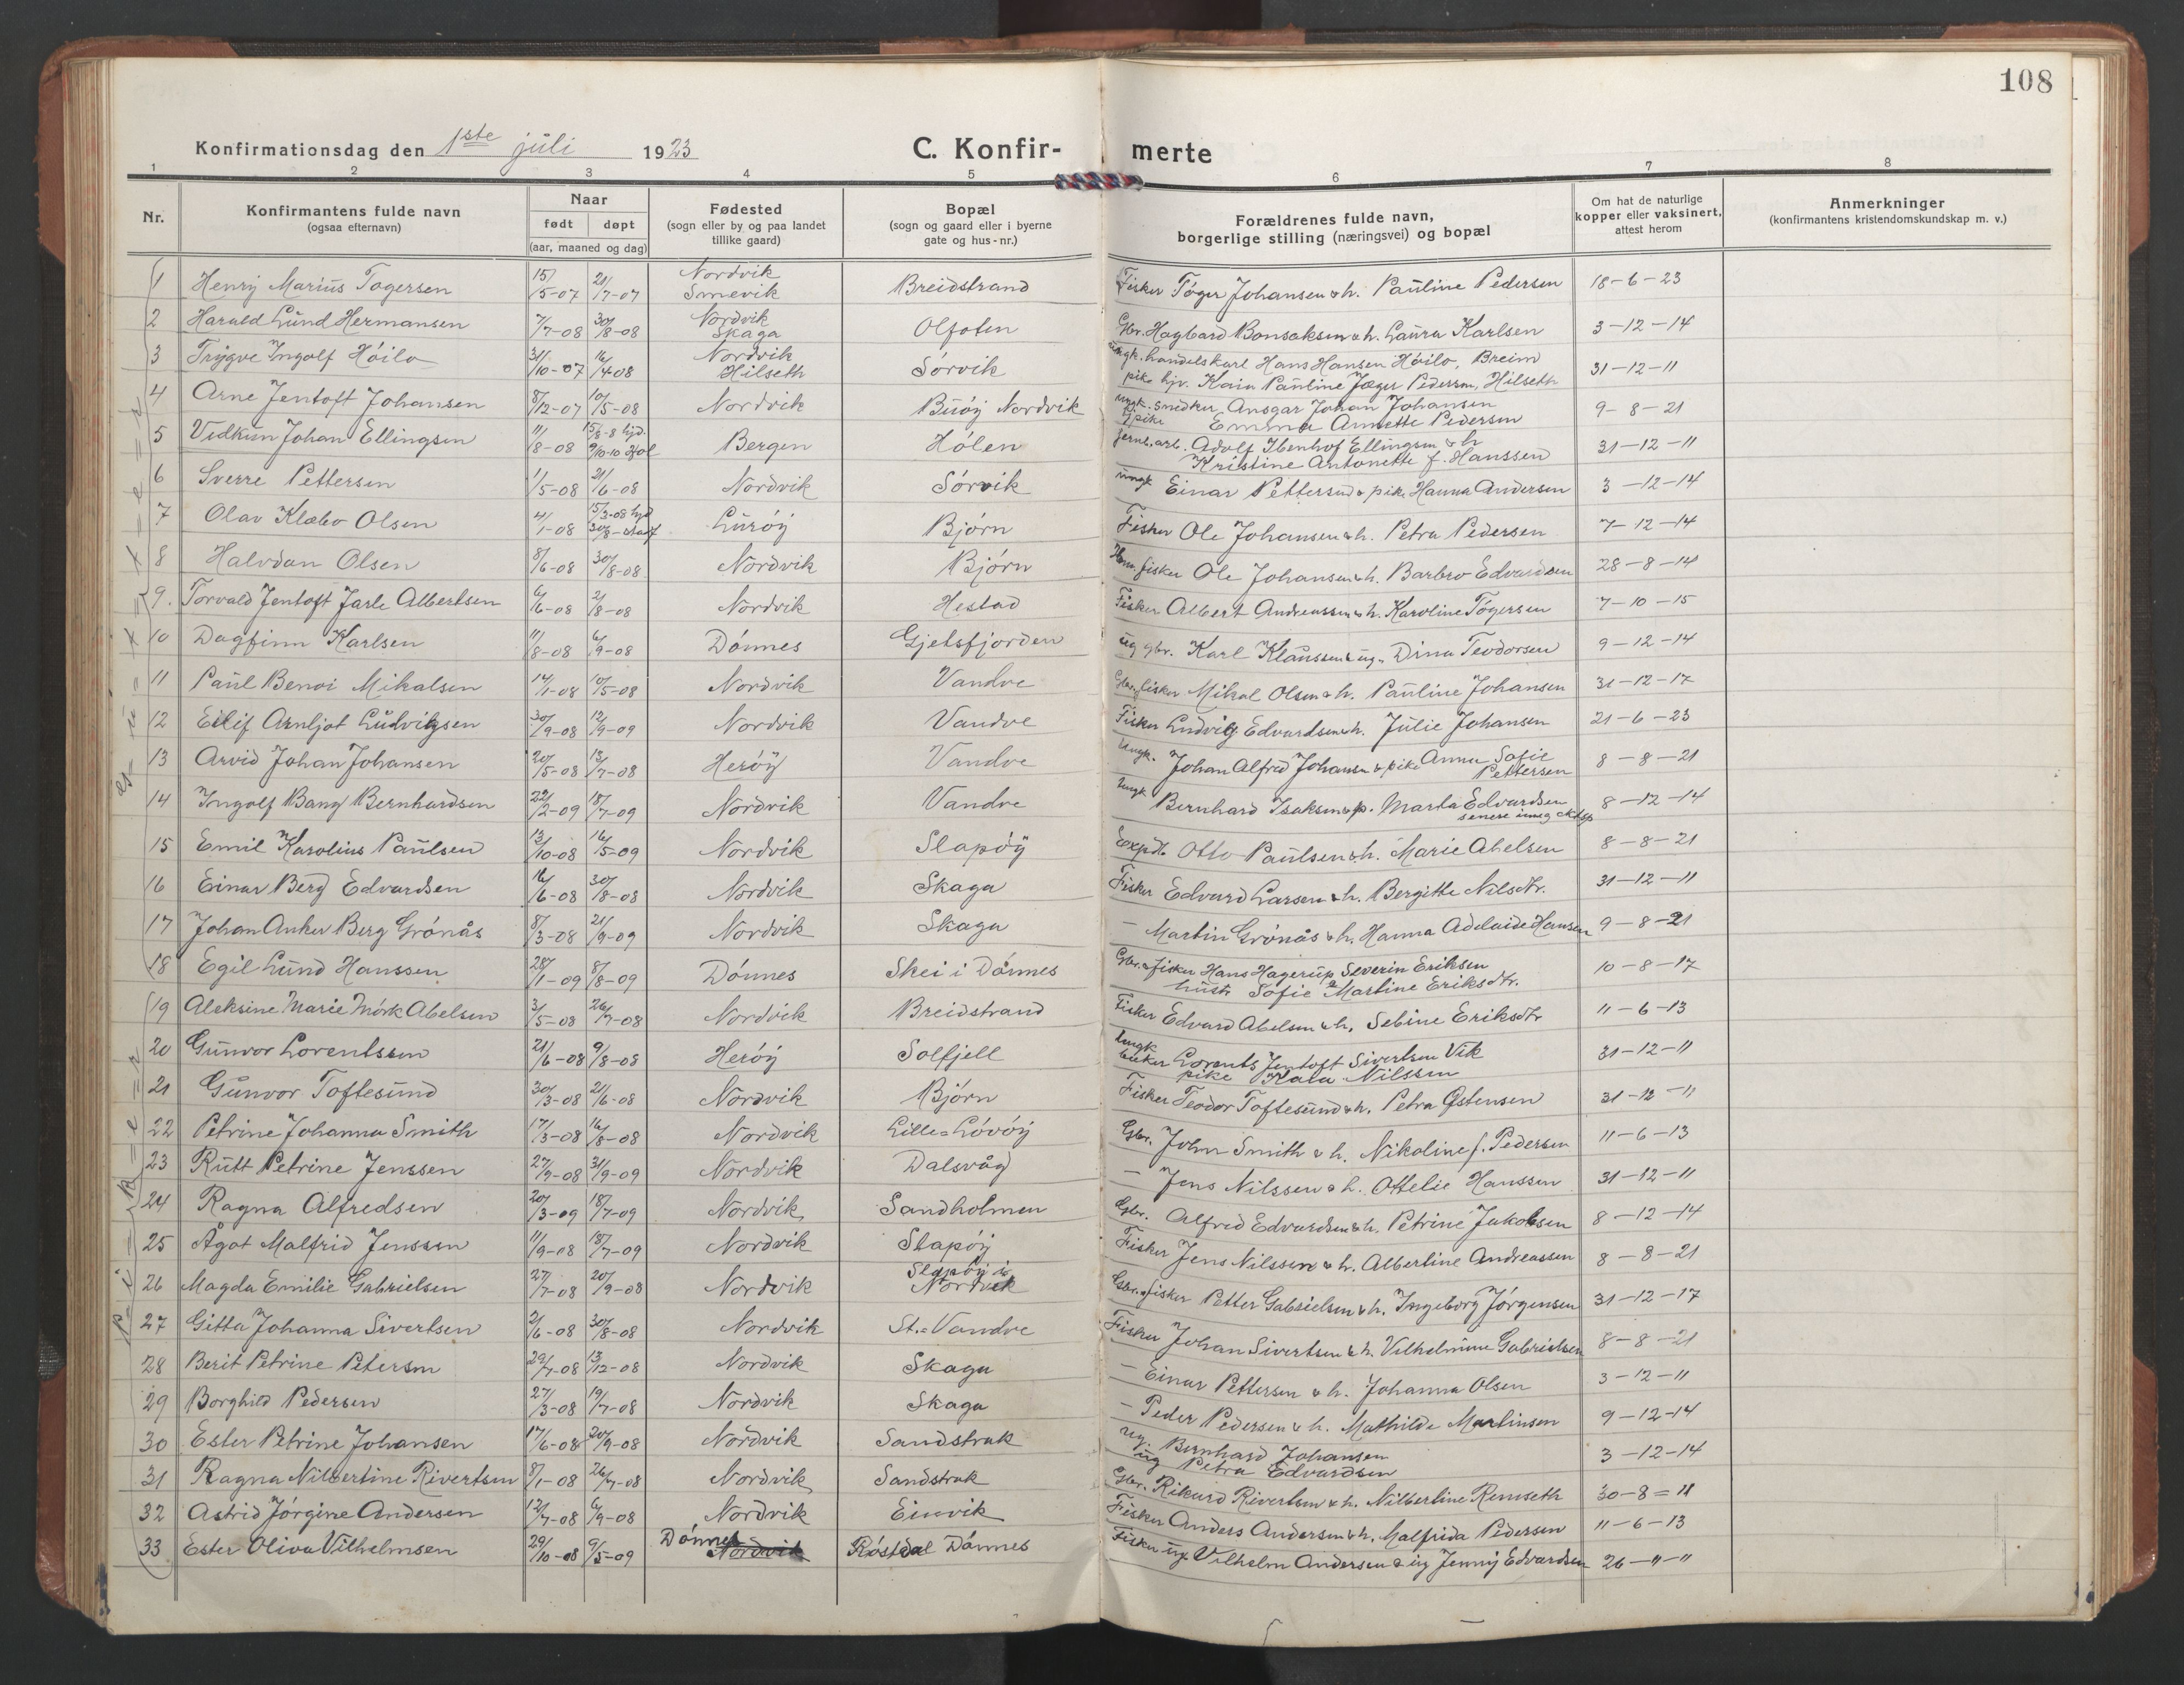 108
Konfirmationsdag den 1ste juli 1923 C. Konfir- merte
1 2 3 4 5 6 7 8
Nr. Konfirmantens fulde navn (ogsaa efternavn) Naar født døpt (aar, maaned og dag) Fødested (sogn eller by og paa landet tillike gaard) Bopæl (sogn og gaard eller i byerne gate og hus-nr.) Forældrenes fulde navn, borgerlige stilling (næringsvei) og bopæl Om hat de naturlige kopper eller vaksinert, attest herom Anmerkninger (konfirmantens kristendomskundskap m. v.)
1 Henry Marius Tøgersen 15/5-07 21/7-07 Nordvik Smevik Breidstrand Fisker Tøger Johansen & h. Pauline Pedersen 18-6-23
2 Harald Lund Hermansen 7/7-08 30/8-08 Nordvik Skaga Olfoten Gbr. Hagbard Bonsaksen & h. Laura Karlsen 3-12-14
3 Trygve Ingolf Høilo 31/10-07 16/4 08 Nordvik Hilseth Sørvik ungk. handelskarl Hans Hansen Høilo, Breim pike hjv. Kaia Pauline Jæger Pedersen, Hilseth 31-12-11
4 Arne Jentoft Johansen 8/12-07 10/5-08 Nordvik Buøy Nordvik ungk. snedker Ansgar Johan Johansen & pike Emma Annette Pedersen 9-8-21
5 Vidkun Johan Ellingsen 11/8-08 15/8-8 hjd. 9/10-10 Hol Bergen Hølen jernb. arb. Adolf Ibenhof Ellingsen & h Kristine Antonette f. Hanssen 31-12-11
6 Sverre Pettersen 1/5-08 21/6-08 Nordvik Sørvik ungk Einar Pettersen & pike Hanna Andersen 3-12-14
7 Olav Klæbo Olsen 4/1-08 15/3-08 hjd 30/8- Lurøy Bjørn Fisker Ole Johansen & h. Petra Pedersen 7-12-14
8 Halvdan Olsen 8/6-08 30/8-08 Nordvik Bjørn fisker Ole Johansen & h. Barbro Edvardsen 28-8-14
9. Torvald Jentoft Jarle Albertsen 6/6-08 2/8-08 Nordvik Hestad Fisker Albert Andreassen & h. Karoline Tøgersen 7-10-15
10 Dagfinn Karlsen 11/8-08 6/9-08 Dønnes Gjetsfjorden ug gbr. Karl Klaussen & ug. Dina Teodorsen 9-12-14
11 Paul Benoi Mikalsen 14/1-08 10/5-08 Nordvik Vandve Gbr. fisker Mikal Olsen & h. Pauline Johansen 31-12-17
12 Eilif Arnljot Ludvigsen 30/9-08 12/9-09 Nordvik Vandve Fisker Ludvig Edvardsen & h. Julie Johansen 21-6-23
13 Arvid Johan Johansen 20/5-08 13/7-08 Herøy Vandve Ungk. Johan Alfred Johansen & pike Anna Sofie Pettersen 8-8-21
14 Ingolf Bang Bernhardsen 22/2-09 18/7-09 Nordvik Vandve Ungk Bernhard Isaksen & p. Marta Edvardsen senere inng ektsp 8-12-14
15 Emil Karolius Paulsen 13/10-08 16/5-09 Nordvik Slapøy Expdt. Otto Paulsen & h. Marie Abelsen 8-8-21
16 Einar Berg Edvardsen 16/6-08 30/8-08 Nordvik Skaga Fisker Edvard Larsen & h. Bergitte Nilsdtr. 31-12-11
17 Johan Anker Berg Grønås 8/3-08 21/9-09 Nordvik Skaga — Martin Grønås & h. Hanna Adelaide Hansen 9-8-21
18 Egil Lund Hanssen 28/1-09 8/8-09 Dønnes Skei i Dønnes Gbr. & fisker Hans Hagerup Severin Eriksen hustr Sofie Martine Eriksdtr. 10-8-17
19 Aleksine Marie Mørk Abelsen 3/5-08 26/7-08 Nordvik Breidstrand Fisker Edvard Abelsen & h. Sebine Eriksdtr 11-6-13
20 Gunvor Lorentssen 21/6-08 9/8-08 Herøy Solfjell Ungk Lorents Jentoft Sivertsen Vik pike Kaia Nilssen 31-12-11
21 Gunvor Toftesund 30/3-08 21/6-08 Nordvik Bjørn Fisker Teodor Toftesund & h. Petra Østensen 31-12-11
22 Petrine Johanna Smith 17/3-08 16/8-08 Nordvik Lille-Løvøy Gbr. John Smith & h. Nikoline f. Pedersen 11-6-13
23 Rutt Petrine Jenssen 27/9-08 31/9-09 Nordvik Dalsvåg — Jens Nilssen & h. Ottelie Hanssen 31-12-11
24 Ragna Alfredsen 20/3-09 18/7-09 Nordvik Sandholmen Gbr. Alfred Edvardsen & h. Petrine Jakobsen 8-12-14
25 Ågot Malfrid Jenssen 11/9-08 18/7-09 Nordvik Slapøy Fisker Jens Nilssen & h. Albertine Andreassen 8-8-21
26 Magda Emilie Gabrielsen 27/7-08 20/9-08 Nordvik Slapøy i Nordvik Gbr. & fisker Petter Gabrielsen & h. Ingeborg Jørgensen 31-12-17
27 Gitta Johanna Sivertsen 2/6-08 30/8-08 Nordvik St.-Vandve Fisker Johan Sivertsen & h. Vilhelmine Gabrielsen 8-8-21
28 Berit Petrine Petersen 29/7-08 13/12-08 Nordvik Skaga — Einar Pettersen & h. Johanna Olsen 3-12-11
29 Borghild Pedersen 27/3-08 19/7-08 Nordvik Skaga — Peder Pedersen & h. Mathilde Martinsen 9-12-14
30 Ester Petrine Johansen 17/6-08 20/9-08 Nordvik Sandstrak ug. Bernhard Johansen ug Petra Edvardsen 3-12-14
31 Ragna Nilbertine Rivertsen 8/1-08 26/7-08 Nordvik Sandstrak Gbr. Rikard Rivertsen & h. Nilbertine Remseth 30-8-11
32 Astrid Jørgine Andersen 12/7-08 6/9-08 Nordvik Einvik Fisker Anders Andersen & h. Malfrida Pedersen 11-6-13
33 Ester Oliva Vilhelmsen 29/10-08 9/5-09 Dønnes Nordvik Røsdal Dønnes Fisker ug. Vilhelm Andersen & ug Jenny Edvardsen 26-"-"